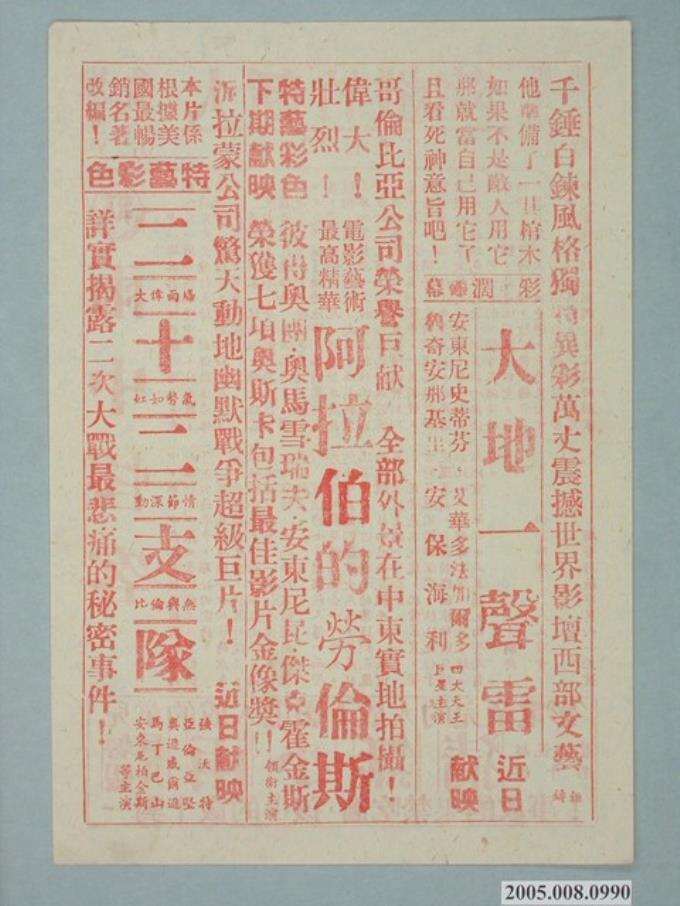 千錘白鍊風格獨特異彩萬丈震撼世界影壇西部文藝
他準備了一具棺木
如果不是敵人用它
那就當自己用它了
且看死神意旨吧！
彩潤銀幕
大地一聲雷
近日獻映
安東尼史蒂芬・艾華多法加爾多
安保海利
四大天王
主演
哥倫比亞公司榮譽巨献 全部外景在中東實地拍攝！
偉大！
壯烈！
電影藝術
最高精華
阿拉伯的勞倫斯
特藝彩色
下期献映
彼得奧圖・奧馬雪瑞夫・安東尼昆・傑克霍金斯
領銜主演
榮獲七項奧斯卡包括最佳影片金像獎！！
派拉蒙公司驚天動地幽默戰爭超級巨片！
近日献映
本片係
根據美
國最暢
銷名著
改編！
特藝彩色
二十二支隊
場面偉大
氣勢如虹
情節深動
無與倫比
強沃特
亞倫亞堅
奧迪威爾遜
馬丁巴山
安東尼柏金斯
等主演
詳實揭露二次大戰最悲痛的秘密事件！
2005.008.0990